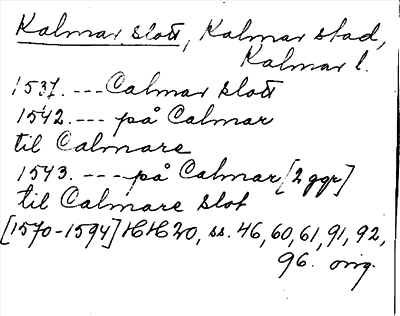 Kalmar slott, Kalmar stad,
Kalmar l.
1537. --- Calmar slott
1542. --- på Calmar
til Calmare
1543. ---- på Calmar [2 ggr]
til Calmare slot
[1570-1594] HH 20, ss. 46, 60, 61, 91, 92,
96. orig.